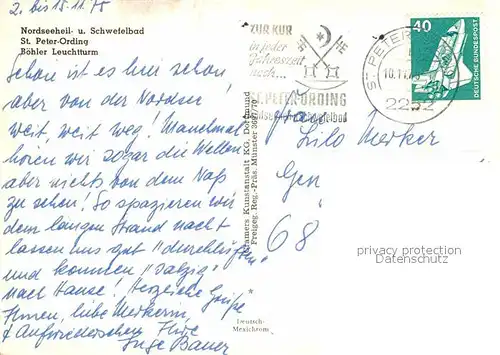 2. bis 15.11.75
Nordseeheil- u. Schwefelbad
St. Peter-Ording
Böhler Leuchtturm
Schön ist es hier schon,
aber von der Nordsee
weit, weit weg! Manchmal
hören wir sogar die Wellen
aber nichts von dem Naß
zu sehen! So spazieren wir
dem langen Strand nach
lassen uns gut "durchlüften"
und kommen "salzig"
nach Hause! Herzliche Grüße
Ihnen, liebe Merkerin,
Aufwiedersehen Ihre
Inge Bauer
Cramers Kunstanstalt KG, Dortmund
Freigeg. Reg.-Präs. Münster
*
Deutsch-
Mexichrom
ZUR KUR
in jeder
Jahreszeit
nach...
ST. PETER-ORDING
ST. PETER
2252
40
DEUTSCHE BUNDESPOST
Lilo Merker
68
privacy protection
for AK-Ansichtskarten